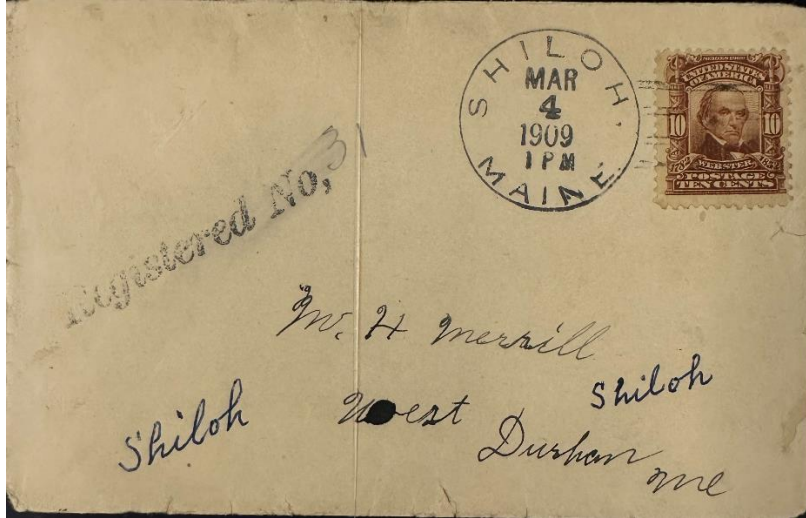 SHILOH, MAINE
MAR
4
1909
1 PM
SERIES 1902
UNITED STATES
OF AMERICA
10 10
1782 WEBSTER 1852
POSTAGE
TEN CENTS
Registered No, 31
Mr. H Merrill
Shiloh
West
Shiloh
Durham
Me